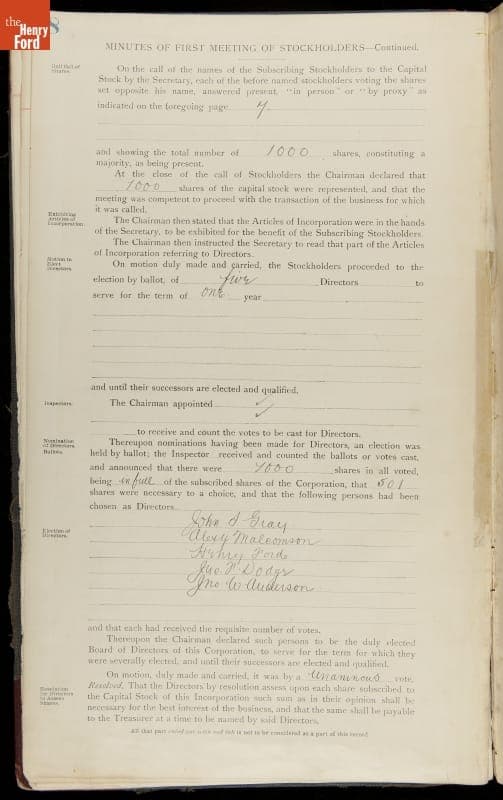 the
Henry
Ford
8
MINUTES OF FIRST MEETING OF STOCKHOLDERS—Continued.
Roll Call of
Shares.
On the call of the names of the Subscribing Stockholders to the Capital
Stock by the Secretary, each of the before named stockholders voting the shares
set opposite his name, answered present, "in person" or "by proxy" as
indicated on the foregoing page 7
and showing the total number of 1000 shares, constituting a
majority, as being present.
At the close of the call of Stockholders the Chairman declared that
1000 shares of the capital stock were represented, and that the
meeting was competent to proceed with the transaction of the business for which
it was called.
Exhibiting
Articles of
Incorporation.
The Chairman then stated that the Articles of Incorporation were in the hands
of the Secretary, to be exhibited for the benefit of the Subscribing Stockholders.
The Chairman then instructed the Secretary to read that part of the Articles
of Incorporation referring to Directors.
Motion to
Elect
Directors.
On motion duly made and carried, the Stockholders proceeded to the
election by ballot, of five Directors to
serve for the term of one year
and until their successors are elected and qualified.
Inspectors.
The Chairman appointed
to receive and count the votes to be cast for Directors.
Nomination
of Directors.
Ballots.
Thereupon nominations having been made for Directors, an election was
held by ballot; the Inspector received and counted the ballots or votes cast,
and announced that there were 1000 shares in all voted,
being in full of the subscribed shares of the Corporation, that 501
shares were necessary to a choice, and that the following persons had been
chosen as Directors
Election of
Directors.
John S Gray
Alexy Malcomson
Henry Ford
Jno F Dodge
Jno W Anderson
and that each had received the requisite number of votes.
Thereupon the Chairman declared such persons to be the duly elected
Board of Directors of this Corporation, to serve for the term for which they
were severally elected, and until their successors are elected and qualified.
Resolution
for Directors
to Assess
Shares.
On motion, duly made and carried, it was by a Unanimous vote,
Resolved, That the Directors by resolution assess upon each share subscribed to
the Capital Stock of this Incorporation such sum as in their opinion shall be
necessary for the best interest of the business, and that the same shall be payable
to the Treasurer at a time to be named by said Directors.
All that part ruled out with red ink is not to be considered as a part of this record